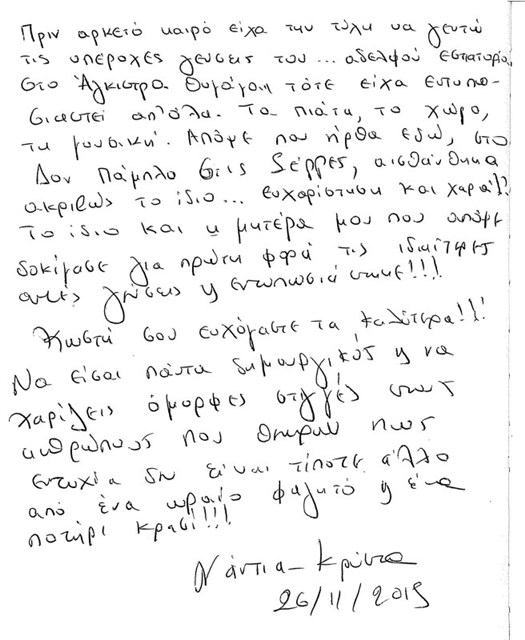 Πριν αρκετό καιρό είχα την τύχη να γευτώ
τις υπέροχες γεύσεις του... αδελφού εστιατορίου
στο Άγκιστρο. Θυμάμαι τότε είχα εντυπω-
σιαστεί απ'όλα. Τα πιάτα, το χώρο,
τη μουσική. Απόψε που ήρθα εδώ, στο
Δον Πάμπλο στις Σέρρες, αισθάνθηκα
ακριβώς το ίδιο... ευχαρίστηση και χαρά!!
Το ίδιο και η μητέρα μου που απόψε
δοκίμασε για πρώτη φορά τις ιδιαίτερες
αυτές γεύσεις κ εντυπωσιάστηκε!!!
Κωστή σου ευχόμαστε τα καλύτερα!!!
Να είσαι πάντα δημιουργικός κ να
χαρίζεις όμορφες στιγμές στους
ανθρώπους που θεωρούν πως
ευτυχία δεν είναι τίποτε άλλο
από ένα ωραίο φαγητό κ ένα
ποτήρι κρασί!!!!
Νάντια - Κρύστα
26/11/2015